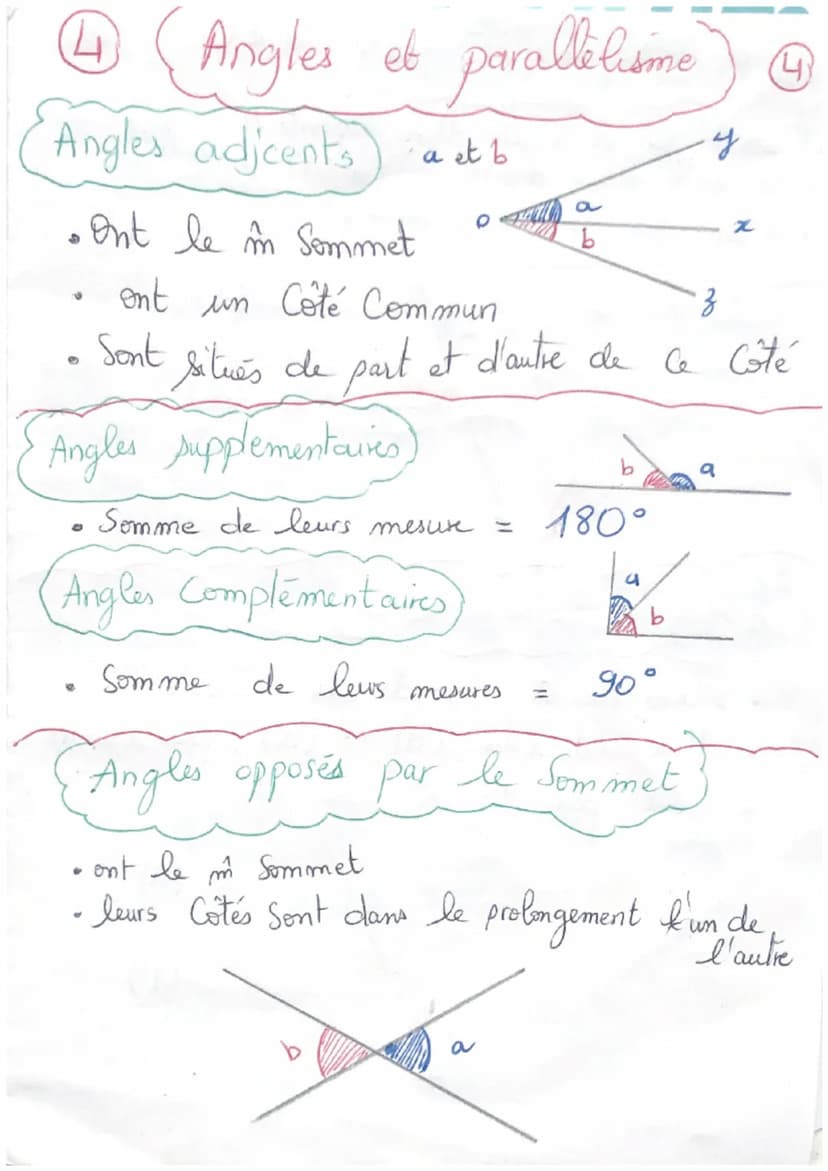 4 Angles et parallèlisme 4
Angles adjcents a et b
y
o a x
b
z
• Ont le m̂ Sommet
• ont un Côté Commun
• Sont situés de part et d'autre de ce Côté
Angles supplementaires
b a
• Somme de leurs mesure = 180°
Angles Complémentaires
a
b
• Somme de leurs mesures = 90°
Angles opposés par le Sommet
• ont le m̂ Sommet
• leurs Côtés Sont dans le prolongement l'un de
l'autre
b a